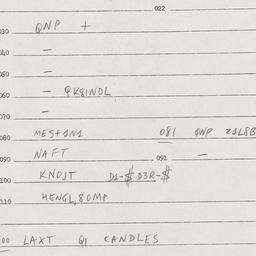 022
030 QNP +
040 -
050 -
060 - QK8INDL
070 -
080 MES+1N1 081 QNP Z1L8B
090 NAFT 091 -
100 KNOJT D1-$ D3R-$
110 HENGL,80MP
00 LAXT Q1 CANDLES